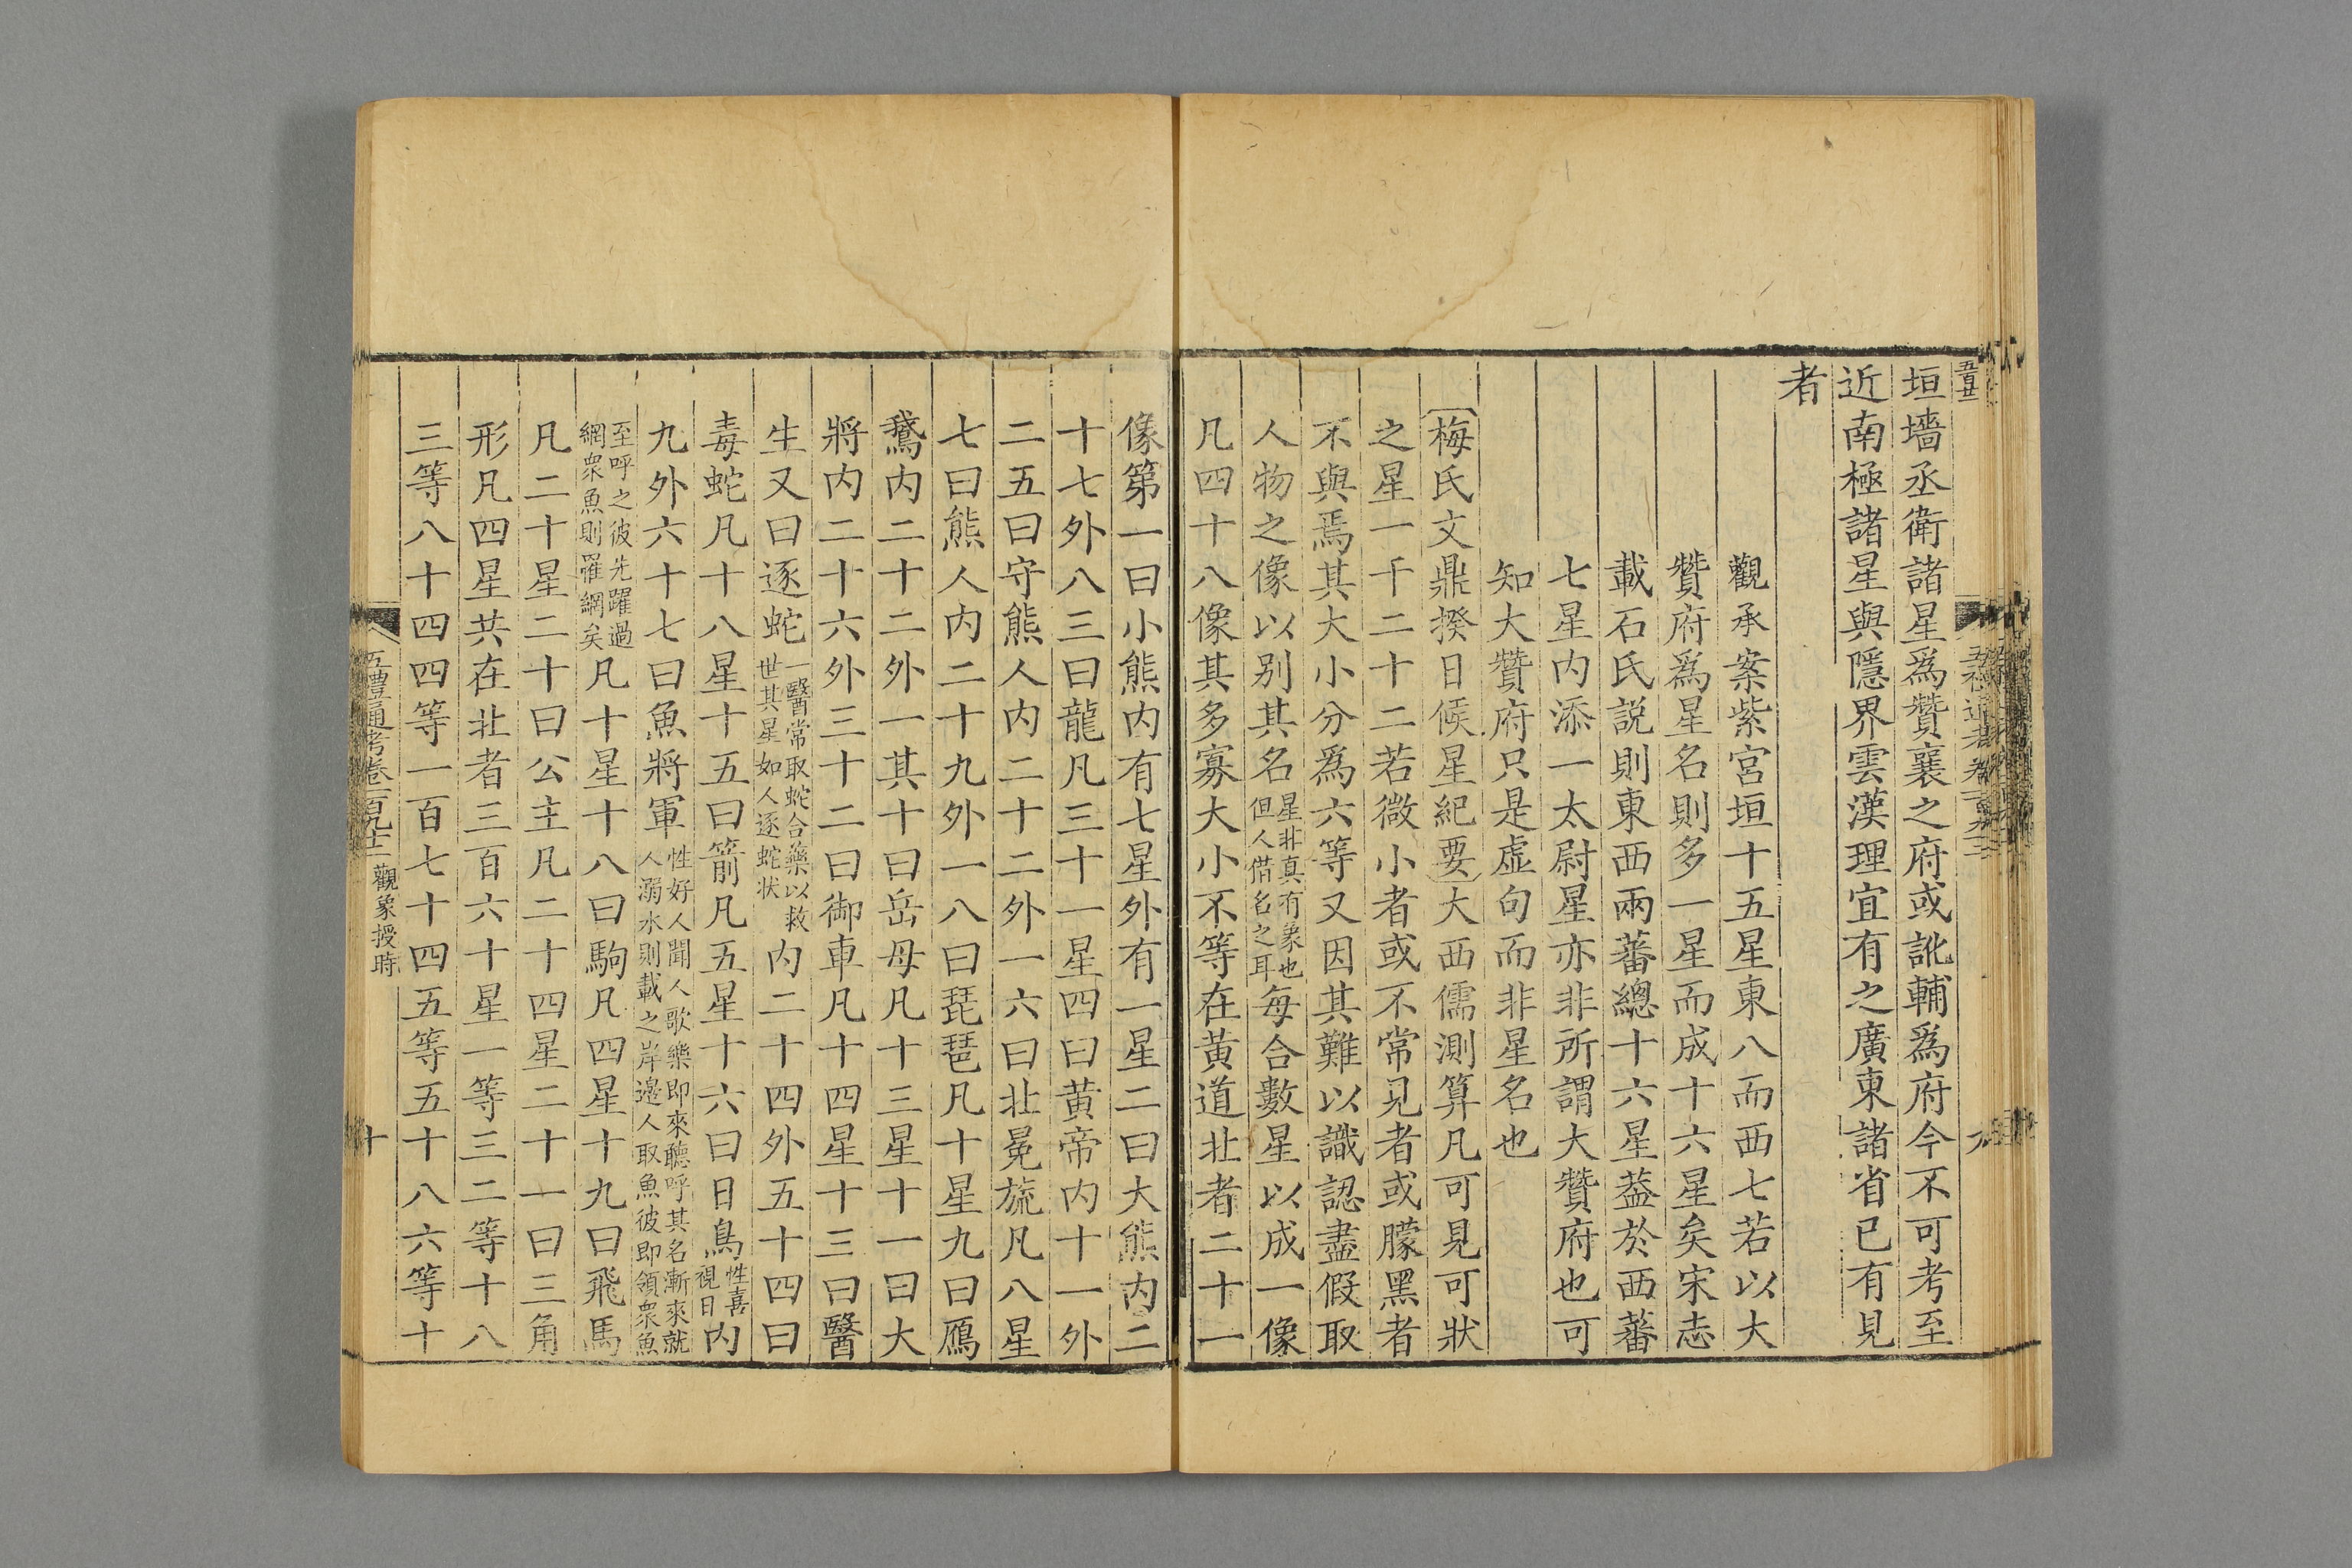 垣墻丞衛諸星爲贊襄之府或訛輔爲府今不可考至
近南極諸星與隱界雲漢理宜有之廣東諸省已有見
者
觀承案紫宮垣十五星東八而西七若以大
贊府爲星名則多一星而成十六星矣宋志
載石氏説則東西兩蕃總十六星葢於西蕃
七星内添一太尉星亦非所謂大贊府也可
知大贊府只是虛句而非星名也
梅氏文鼎揆日候星紀要大西儒測算凡可見可狀
之星一千二十二若微小者或不常見者或朦黑者
不與焉其大小分爲六等又因其難以識認盡假取
人物之像以别其名星非真有象也但人借名之耳每合數星以成一像
凡四十八像其多寡大小不等在黄道北者二十一
像第一曰小熊内有七星外有一星二曰大熊内二
十七外八三曰龍凡三十一星四曰黄帝内十一外
二五曰守熊人内二十二外一六曰北冕旒凡八星
七曰熊人内二十九外一八曰琵琶凡十星九曰鴈
鵞内二十二外一其十曰岳母凡十三星十一曰大
將内二十六外三十二曰御車凡十四星十三曰醫
生又曰逐蛇一醫常取蛇合藥以救世其星如人逐蛇狀内二十四外五十四曰
毒蛇凡十八星十五曰箭凡五星十六曰日鳥性喜視日内
九外六十七曰魚將軍性好人聞人歌樂即來聽呼其名漸來就人溺水則載之岸邊人取魚彼即領衆魚
至呼之彼先躍過網衆魚則罹網矣凡十星十八曰駒凡四星十九曰飛馬
凡二十星二十曰公主凡二十四星二十一曰三角
形凡四星共在北者三百六十星一等三二等十八
三等八十四四等一百七十四五等五十八六等十
五禮通考卷一百九十二 觀象授時
十